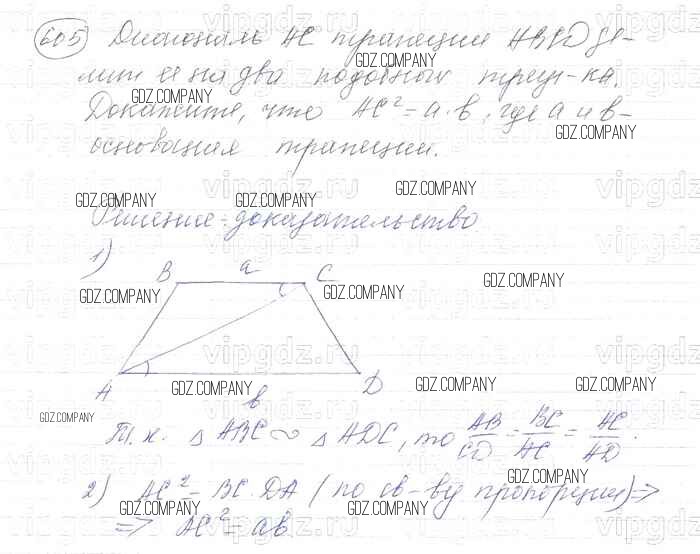 605 Диагональ AC трапеции ABCD де-
лит ее на два подобных треуг-ка.
Докажите, что AC² = a·b, где a и b-
основания трапеции.
Решение-доказательство
1)
B a C
A b D
Т.к. △ABC ∾ △ADC, то AB/CD = BC/AC = AC/AD.
2) AC² = BC·DA (по св-ву пропорции) =>
=> AC² = ab
GDZ.COMPANY
vipgdz.ru